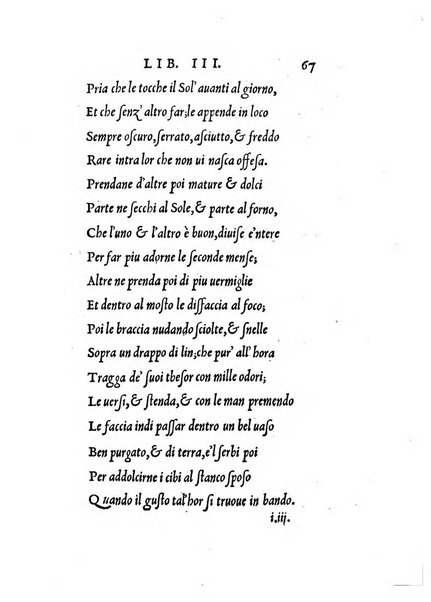 LIB. III. 67
Pria che le tocche il Sol' auanti al giorno,
Et che ſenz' altro far; le appende in loco
Sempre oſcuro, ſerrato, aſciutto, & freddo
Rare intra lor che non ui naſca offeſa.
Prendane d'altre poi mature & dolci
Parte ne ſecchi al Sole, & parte al forno,
Che l'uno & l'altro è buon, diuiſe e'ntere
Per far piu adorne le ſeconde menſe;
Altre ne prenda poi di piu uermiglie
Et dentro al moſto le diſfaccia al foco;
Poi le braccia nudando ſciolte, & ſnelle
Sopra un drappo di lin; che pur' all' hora
Tragga de' ſuoi theſor con mille odori;
Le uerſi, & ſtenda, & con le man premendo
Le faccia indi paſſar dentro un bel uaſo
Ben purgato, & di terra, e'l ſerbi poi
Per addolcirne i cibi al ſtanco ſpoſo
Quando il guſto tal'hor ſi truoue in bando.
i.iij.